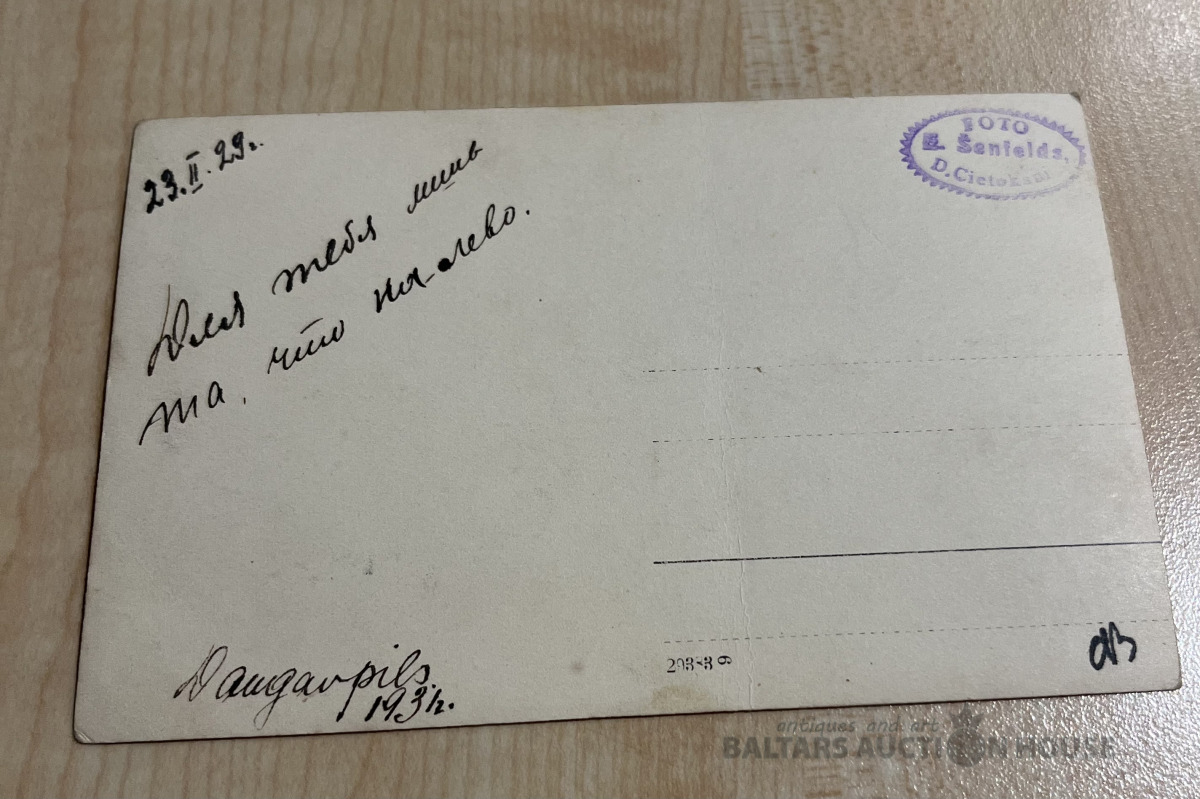 23.II.29г.
Для тебя лишь
та, что на-лево.
FOTO
E. Šenfelds,
D. Cietoksnī
Daugavpils.
193
antiques and art
BALTARS AUCTION HOUSE